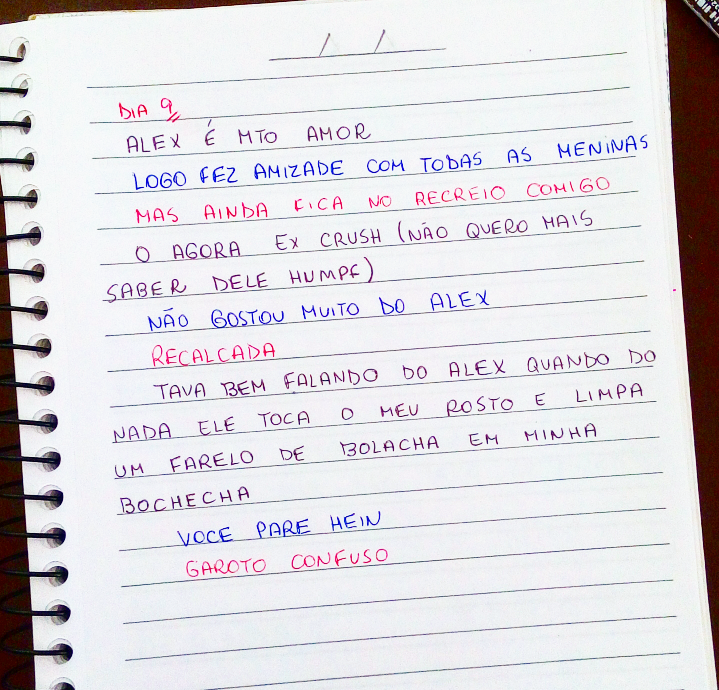 / /
DIA 9
ALEX É MTO AMOR
LOGO FEZ AMIZADE COM TODAS AS MENINAS
MAS AINDA FICA NO RECREIO COMIGO
O AGORA EX CRUSH (NÃO QUERO MAIS
SABER DELE HUMPF)
NÃO GOSTOU MUITO DO ALEX
RECALCADA
TAVA BEM FALANDO DO ALEX QUANDO DO
NADA ELE TOCA O MEU ROSTO E LIMPA
UM FARELO DE BOLACHA EM MINHA
BOCHECHA
VOCE PARE HEIN
GAROTO CONFUSO